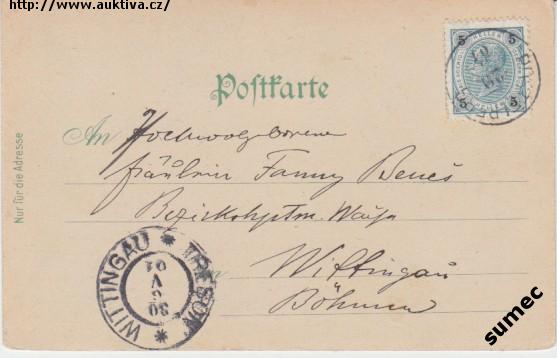 http://www.auktiva.cz/
5 HELLER 5
5 5
Postkarte
Nur für die Adresse
An Hochwohlgeborene
Fräulein Fanny Beneš
Bezirkshptm.
Wittingau
Böhmen
WITTINGAU * TŘEBOŇ *
30
V
01
sumec